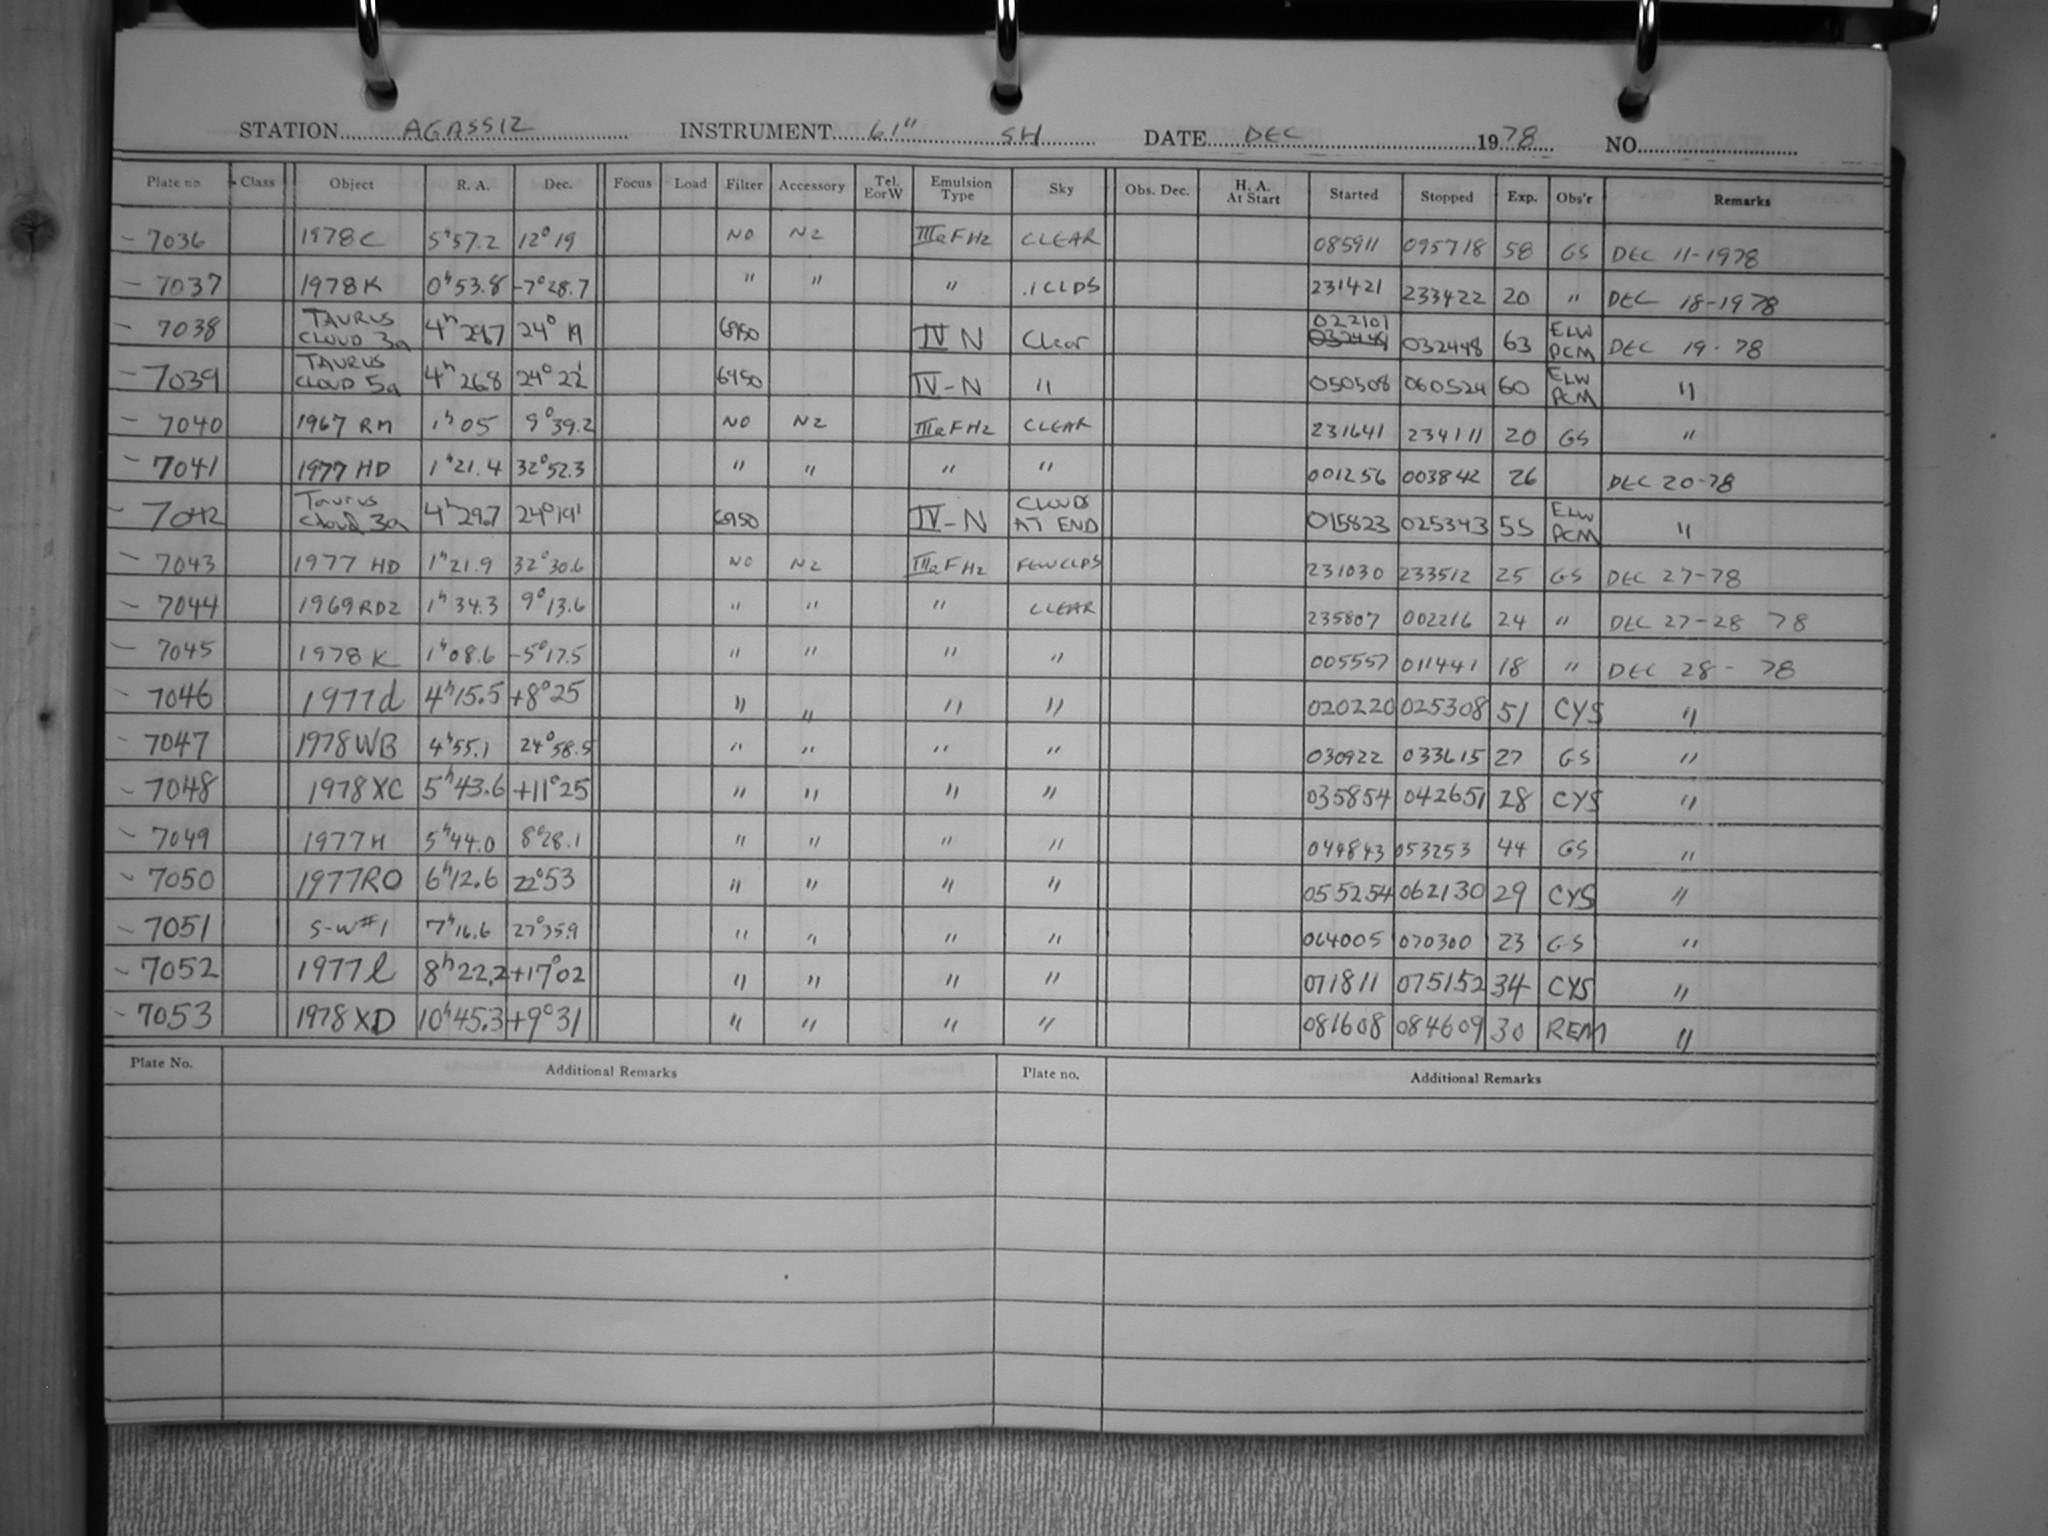 STATION AGASSIZ INSTRUMENT 61" SH DATE DEC 1978 NO.
Plate no. Class Object R. A. Dec. Focus Load Filter Accessory Tel. E or W Emulsion Type Sky Obs. Dec. H. A. At Start Started Stopped Exp. Obs'r Remarks
- 7036 1978C 5h57.2 12°19 NO N2 IIIaF H2 CLEAR 085911 095718 58 GS DEC 11-1978
- 7037 1978K 0h53.8 -7°28.7 " " " .1 CLDS 231421 233422 20 " DEC 18-1978
- 7038 TAURUS CLOUD 3a 4h 29.7 24° 19 6950 IV N Clear 022101 032448 63 ELW PCM DEC 19-78
- 7039 TAURUS CLOUD 5a 4h 26.8 24° 22' 6950 IV-N " 050508 060524 60 ELW PCM "
- 7040 1967 RM 1h05 9°39.2 NO N2 IIIaF H2 CLEAR 231641 234111 20 GS "
- 7041 1977 HD 1h21.4 32°52.3 " " " " 001256 003842 26 DEC 20-78
- 7042 Taurus Cloud 3a 4h29.7 24°19' 6950 IV-N CLOUDS AT END 015823 025343 55 ELW PCM "
- 7043 1977 HD 1h21.9 32°30.6 NO N2 IIIaF H2 FEW CLDS 231030 233512 25 GS DEC 27-78
- 7044 1969 RD2 1h34.3 9°13.6 " " " CLEAR 235807 002216 24 " DEC 27-28 78
- 7045 1978 K 1h08.6 -5°17.5 " " " " 005557 011441 18 " DEC 28- 78
- 7046 1977d 4h15.5 +8°25 " " " " 020220 025308 51 CYS "
- 7047 1978WB 4h55.1 24°58.5 " " " " 030922 033615 27 GS "
- 7048 1978XC 5h43.6 +11°25 " " " " 035854 042651 28 CYS "
- 7049 1977H 5h44.0 8°28.1 " " " " 044843 053253 44 GS "
- 7050 1977RO 6h12.6 22°53 " " " " 055254 062130 29 CYS "
- 7051 S-W#1 7h16.6 27°35.9 " " " " 064005 070300 23 GS "
- 7052 1977l 8h22.2 +17°02 " " " " 071811 075152 34 CYS "
- 7053 1978 XD 10h45.3 +9°31 " " " " 081608 084609 30 REM "
Plate No. Additional Remarks Plate no. Additional Remarks